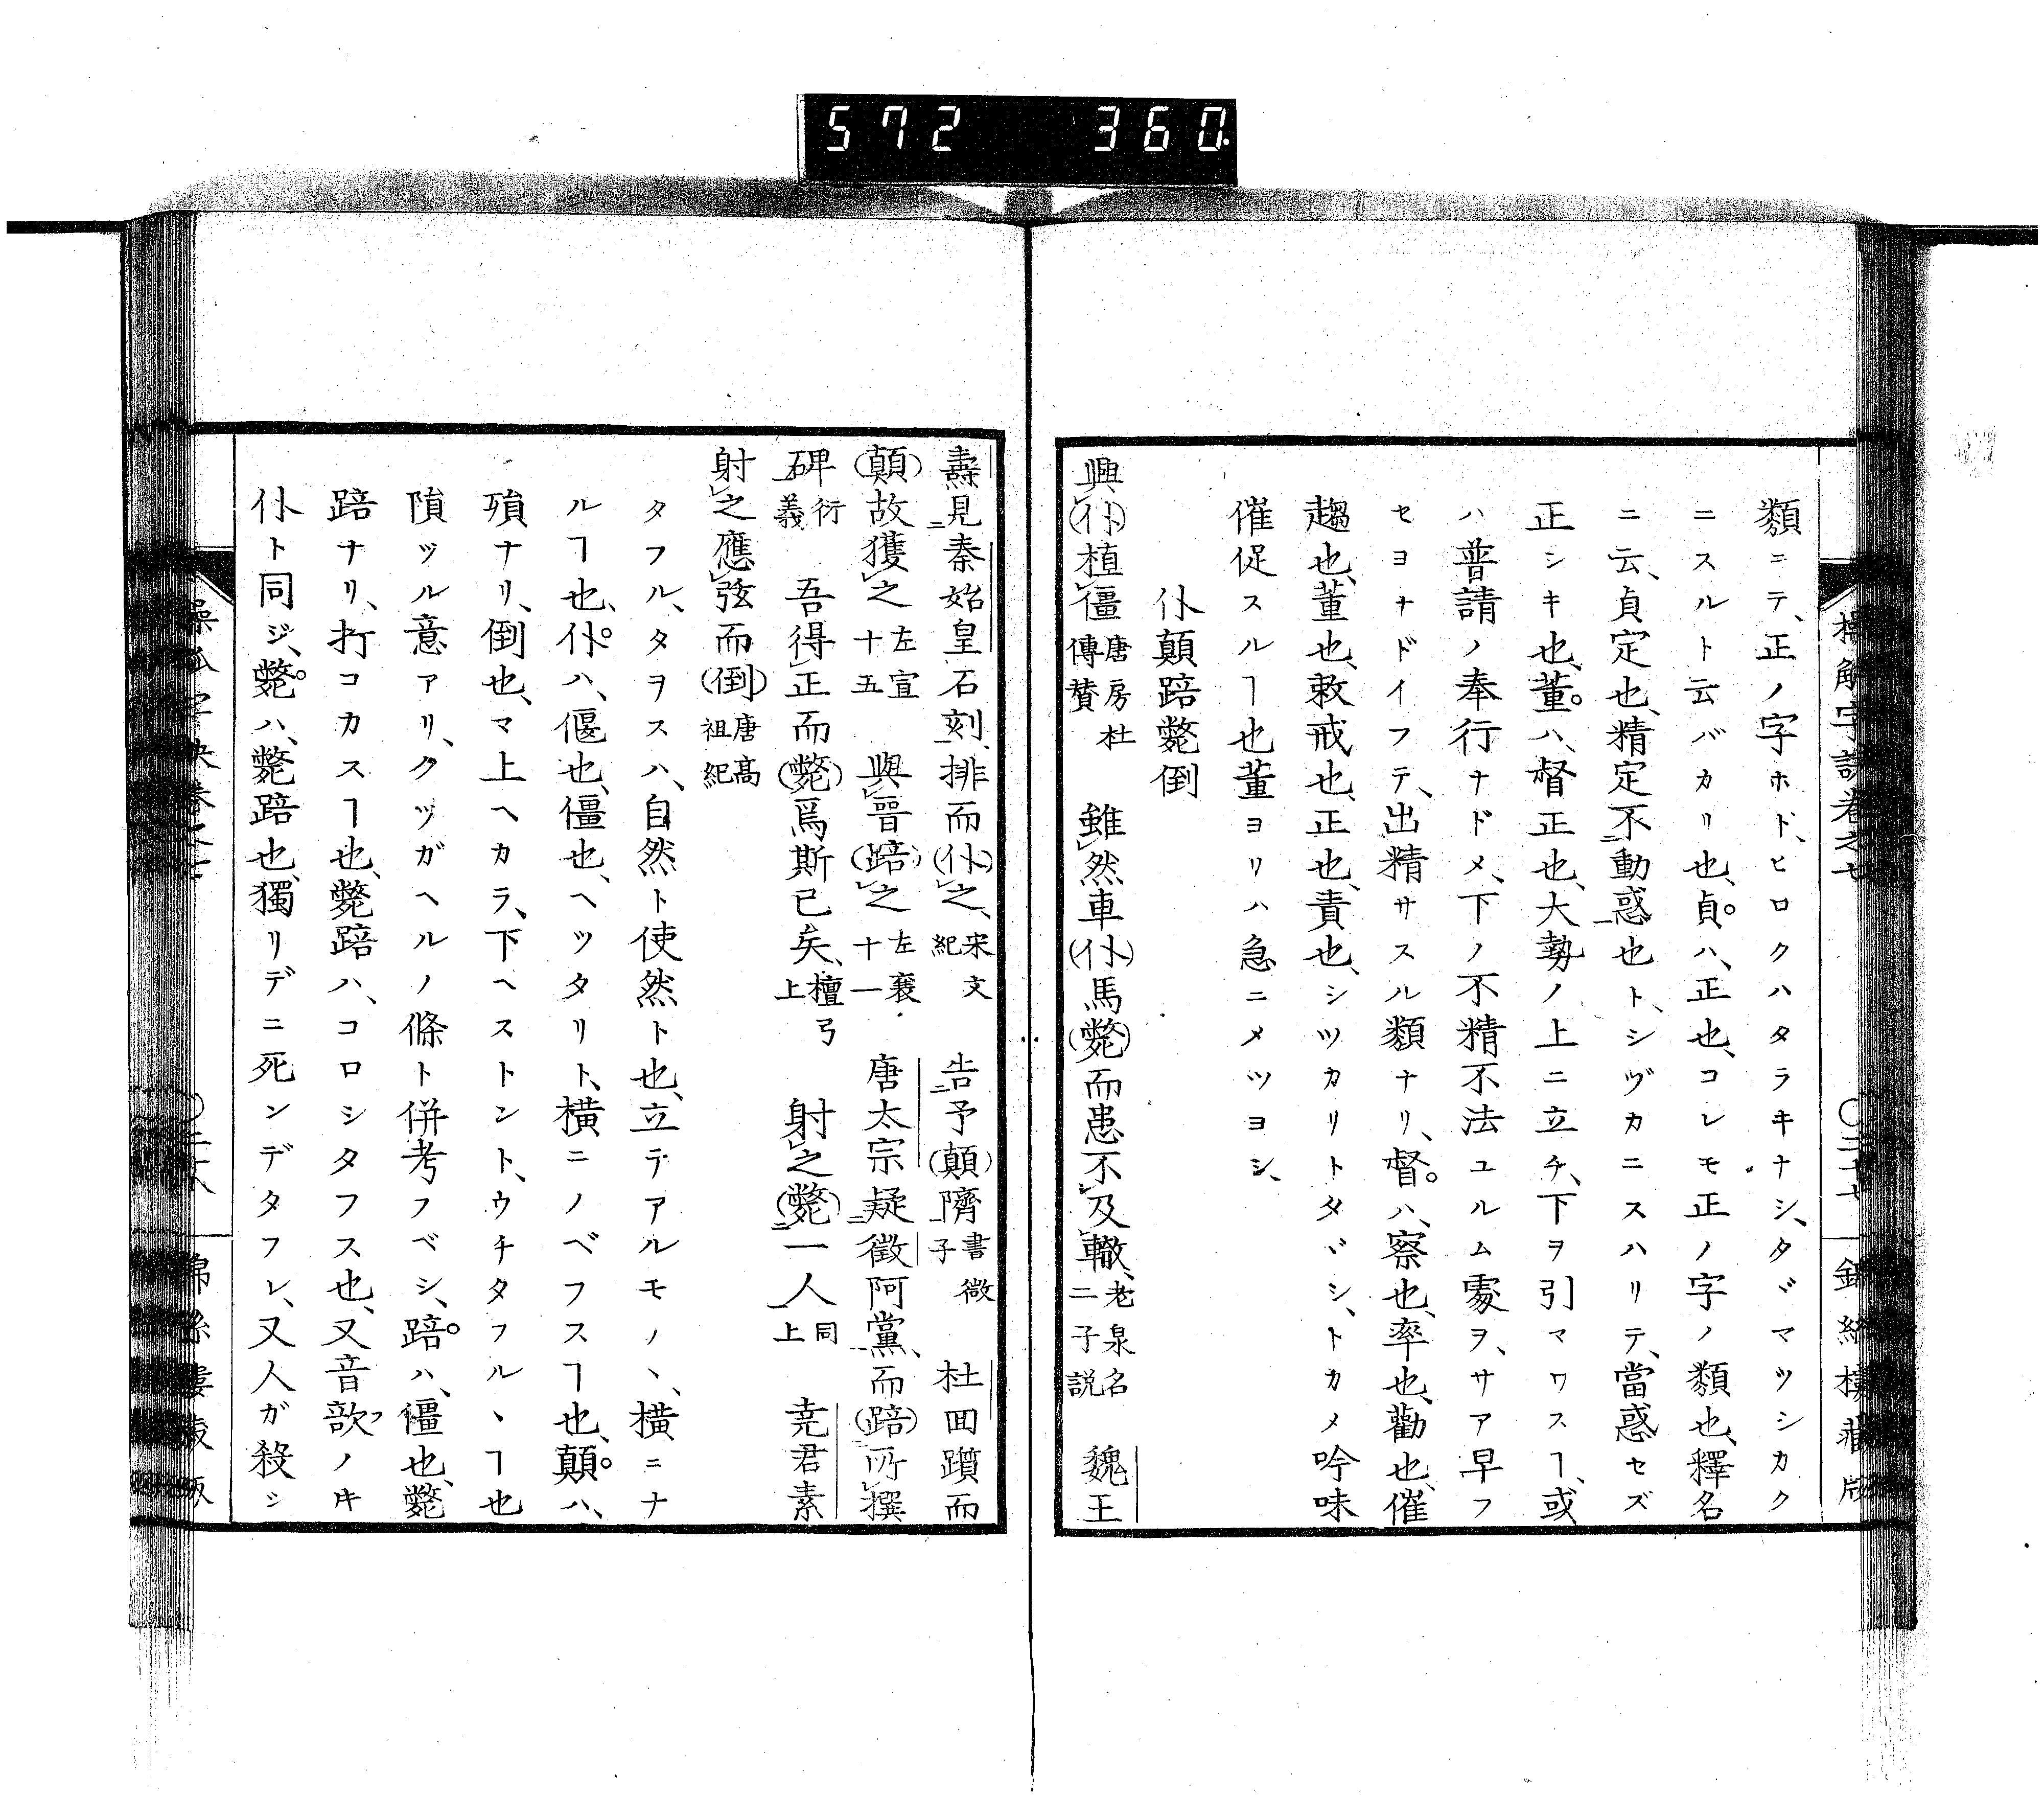 572 360
類ニテ、正ノ字ホド、ヒロクハタラキナシ、タヾマツシカク
ニスルト云バカリ也、貞ハ、正也、コレモ正ノ字ノ類也、釋名
ニ云、貞定也、精定不動惑也ト、シヅカニスハリテ、當惑セズ
正シキ也、董ハ、督正也、大勢ノ上ニ立チ、下ヲ引マワスヿ、或
ハ普請ノ奉行ナドメ、下ノ不精不法ユルム處ヲ、サア早フ
セヨナドイフテ、出精サスル類ナリ、督ハ、察也、率也、勸也、催
趨也、董也、敕戒也、正也、責也、シツカリトタヾシ、トカメ吟味
催促スルヿ也董ヨリハ急ニメツヨシ、
仆顛踣斃倒
興(仆)植僵唐房杜傳賛 雖然車(仆)馬(斃)而患不及轍、老泉名二子説 魏王
燾見秦始皇石刻、排而(仆)之、宋文紀 告予(顛)隮書微子 杜回躓而
(顛)故獲之左宣十五 與晉(踣)之左襄十一 唐太宗疑徵阿黨、而(踣)所撰
碑衍義 吾得正而(斃)焉斯已矣、檀弓上 射之(斃)一人同上 堯君素
射之應弦而(倒)唐高祖紀
タフル、タヲスハ、自然ト使然ト也、立テアルモノヽ、横ニナ
ルヿ也、仆ハ、偃也、僵也、ヘツタリト、横ニノベフスヿ也、顛ハ、
殞ナリ、倒也、マ上ヘカラ、下ヘストント、ウチタフルヽヿ也
隕ツル意アリ、クツガヘルノ條ト併考フベシ、踣ハ、僵也、斃
踣ナリ、打コカスヿ也、斃踣ハ、コロシタフス也、又音歆ノキ
仆ト同ジ、斃ハ、斃踣也、獨リデニ死ンデタフレ、又人ガ殺シ